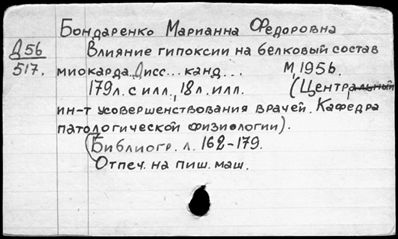 Бондаренко Марианна Федоровна
Д56
517.
Влияние гипоксии на белковый состав
миокарда. Дисс... канд... М, 1956.
179л. с илл., 18л. илл. (Центральный
ин-т усовершенствования врачей. Кафедра
патологической физиологии).
(Библиогр. л. 162-179.
Отпеч. на пиш. маш.